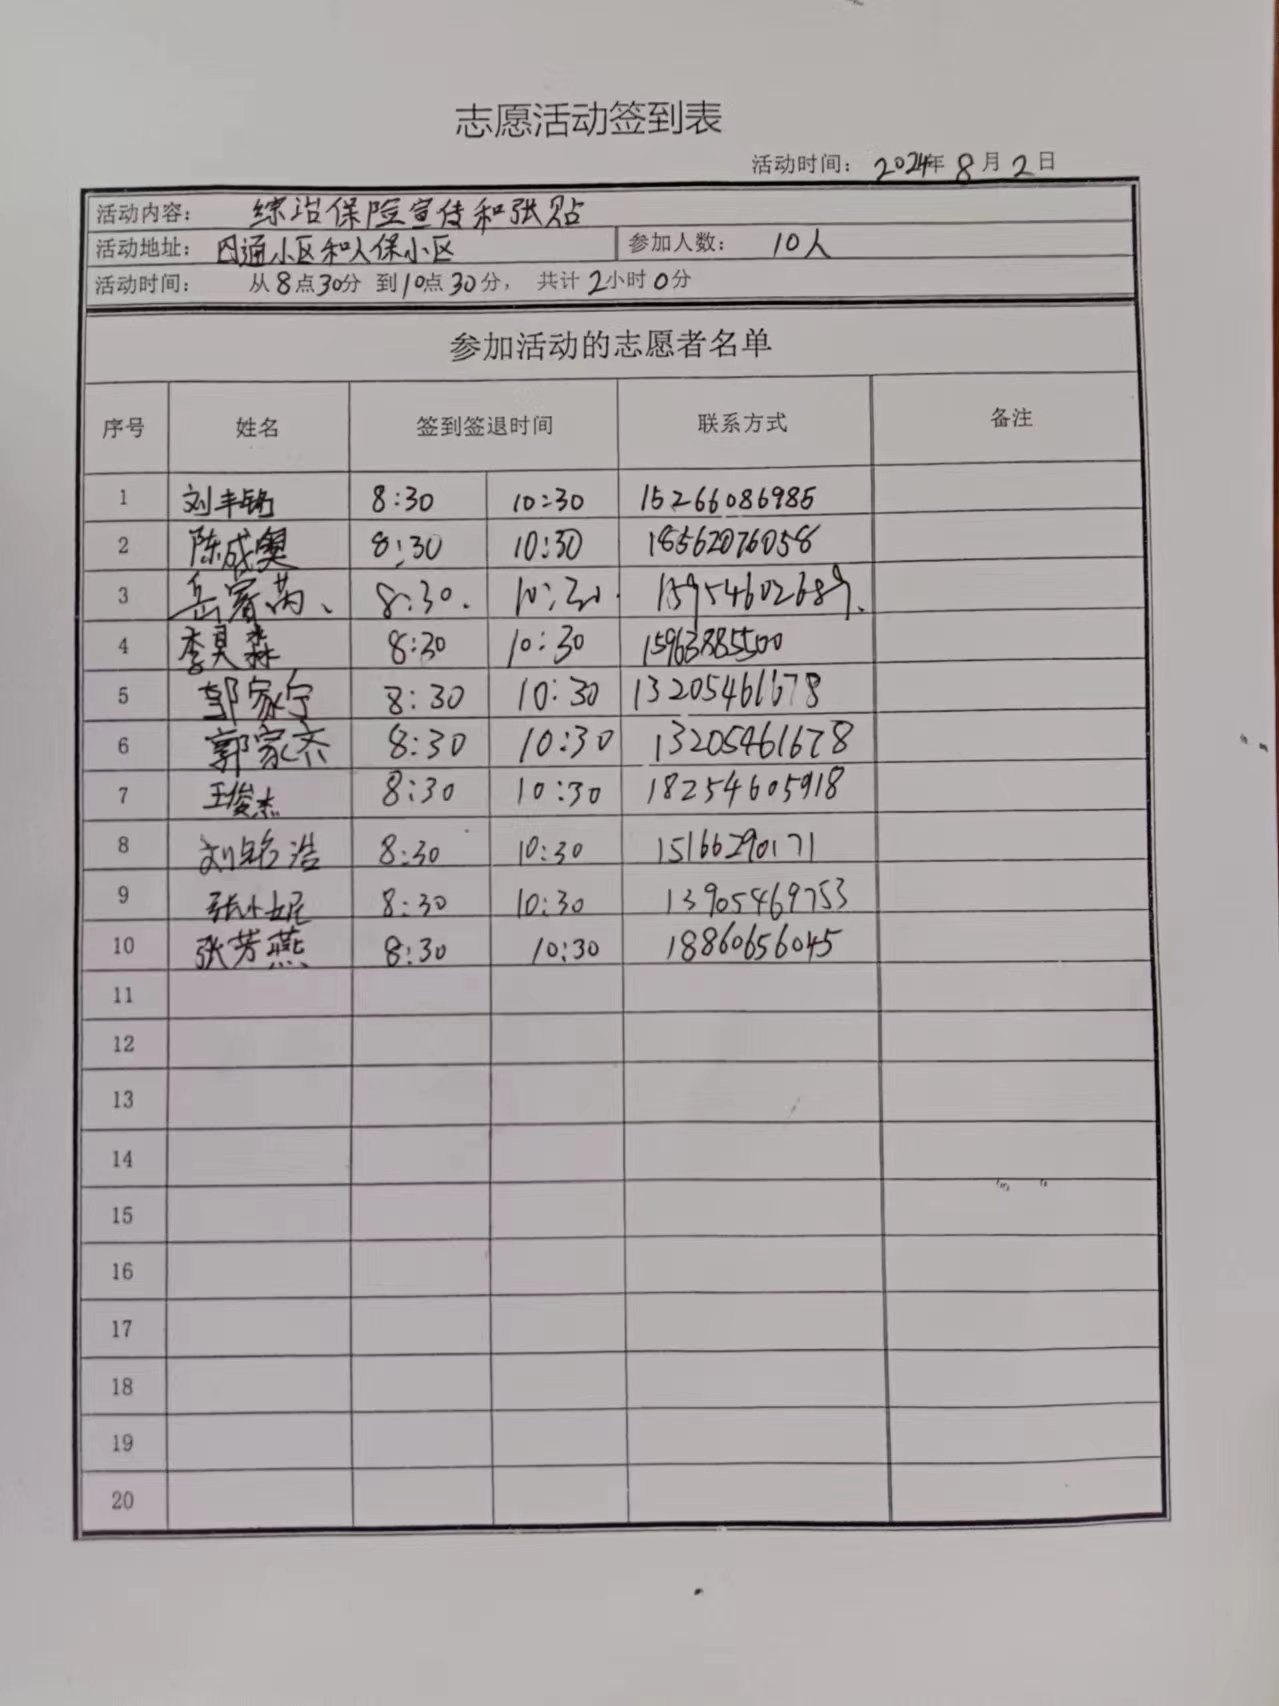 志愿活动签到表
活动时间: 2024年 8月 2日
活动内容: 综治保险宣传和张贴
活动地址: 四通小区和人保小区 参加人数: 10人
活动时间: 从8点30分 到10点30分, 共计2小时0分
参加活动的志愿者名单
序号 姓名 签到签退时间 联系方式 备注
1 刘丰铭 8:30 10:30 15266086985
2 陈成奥 8:30 10:30 18562076058
3 岳 8:30. 10:30. 15954602689.
4 李昊森 8:30 10:30 15963885500
5 郭家宁 8:30 10:30 13205461678
6 郭家齐 8:30 10:30 13205461678
7 王俊杰 8:30 10:30 18254605918
8 刘铭浩 8:30 10:30 15166290171
9 张小妮 8:30 10:30 13905469753
10 张芳燕 8:30 10:30 18860656045
11
12
13
14
15
16
17
18
19
20